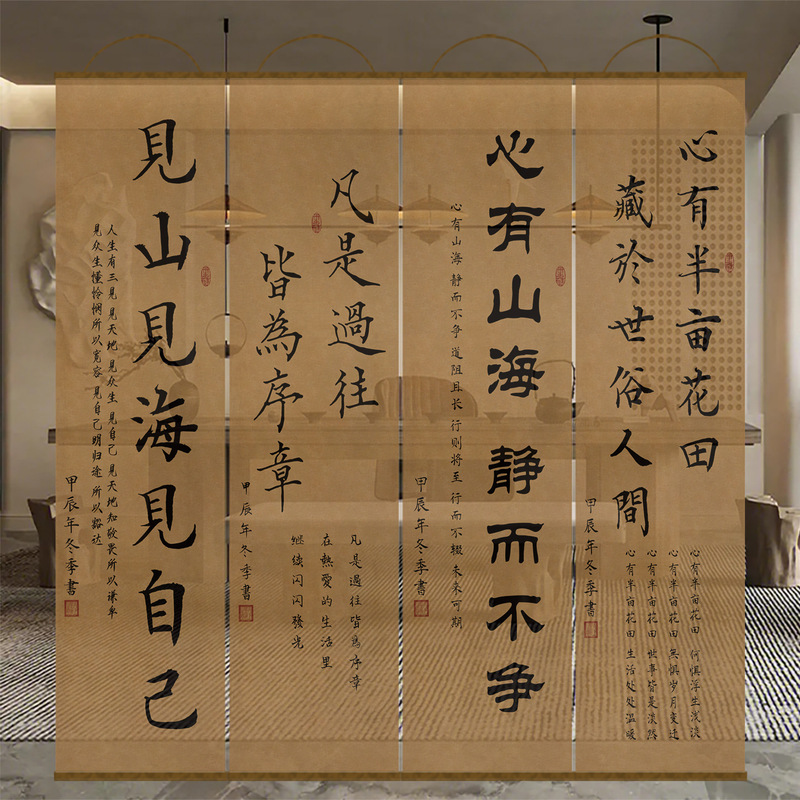 心有半亩花田
藏於世俗人間
心有半亩花田 何惧浮生浅淡
心有半亩花田 無惧岁月变迁
心有半亩花田 世事皆是淡然
心有半亩花田 生活处处温暖
甲辰年冬季書
心有山海 静而不争
心有山海 静而不争 道阻且长 行则将至 行而不辍 未来可期
甲辰年冬季書
凡是過往
皆為序章
凡是過往皆為序章
在熱愛的生活里
继续闪闪發光
甲辰年冬季書
見山見海見自己
人生有三見 見天地 見众生 見自己 見天地知敬畏所以谦卑
見众生懂怜悯所以宽容 見自己明归途 所以豁达
甲辰年冬季書